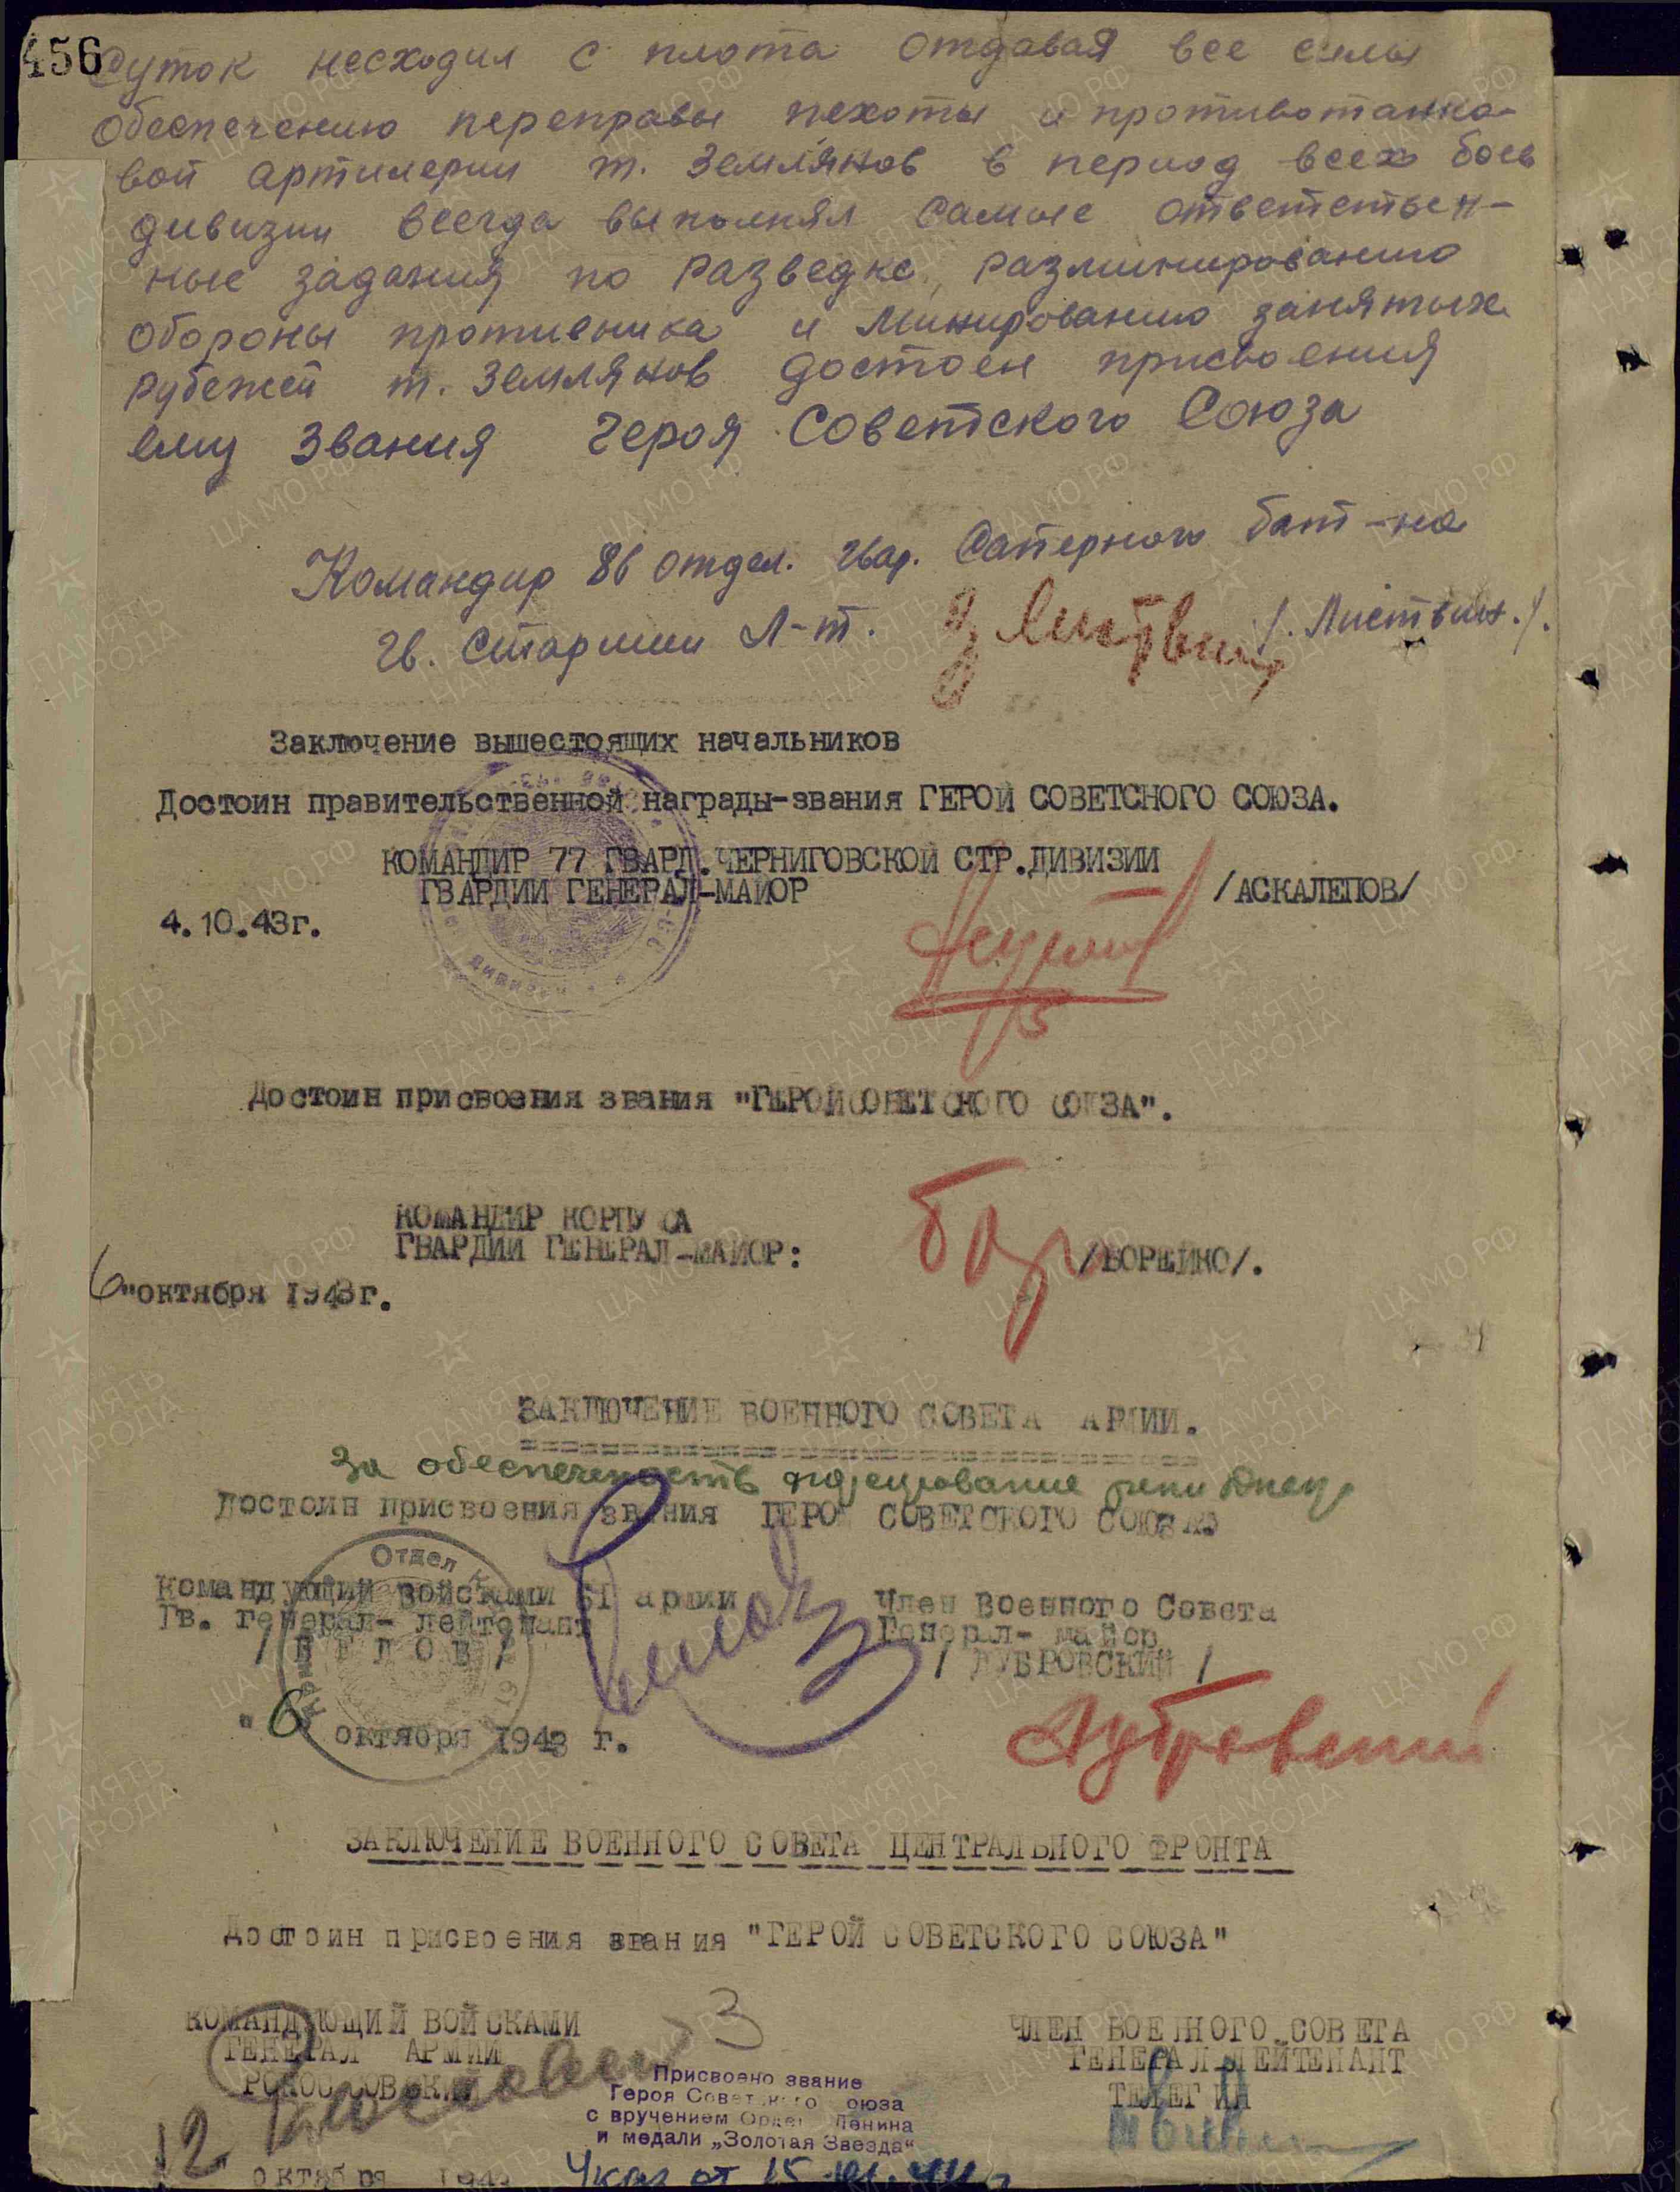 456
суток несходил с плота отдавая все силы
обеспечению переправы пехоты и противотанко-
вой артилерии т. Земляков в период всех боев
дивизии всегда выполнял самые ответствен-
ные задания по разведке, разминированию
обороны противника и минированию занятых
рубежей т. Земляков достоен присвоения
ему звания Героя Советского Союза
Командир 86 отдел. гвар. Саперного бат-на
гв. Старший Л-т. /. Листвин ./.
Заключение вышестоящих начальников
Достоин правительственной награды-звания ГЕРОЙ СОВЕТСКОГО СОЮЗА.
КОМАНДИР 77 ГВАРД.ЧЕРНИГОВСКОЙ СТР.ДИВИЗИИ
ГВАРДИИ ГЕНЕРАЛ-МАЙОР /АСКАЛЕПОВ/
4.10.43г.
Достоин присвоения звания "ГЕРОЙ СОВЕТСКОГО СОЮЗА".
КОМАНДИР КОРПУСА
ГВАРДИИ ГЕНЕРАЛ-МАЙОР: /БОРЕЙКО/.
6 "октября 1943г.
ЗАКЛЮЧЕНИЕ ВОЕННОГО СОВЕТА АРМИИ.
За обеспеченность форсирование реки Днепр
Достоин присвоения звания ГЕРОЯ СОВЕТСКОГО СОЮЗА
Отдел
Командующий войсками 61 армии Член Военного Совета
Гв. генерал- лейтенант Генерал- майор
/ БЕЛОВ / / ДУБРОВСКИЙ /
Дубровский
" 6 октября 1943 г.
ЗАКЛЮЧЕНИЕ ВОЕННОГО СОВЕТА ЦЕНТРАЛЬНОГО ФРОНТА
Достоин присвоения звания "ГЕРОЙ СОВЕТСКОГО СОЮЗА"
КОМАНДУЮЩИЙ ВОЙСКАМИ 3 ЧЛЕН ВОЕННОГО СОВЕТА
ГЕНЕРАЛ АРМИИ ГЕНЕРАЛ ЛЕЙТЕНАНТ
РОКОССОВСКИЙ ТЕЛЕГИН
Присвоено звание
Героя Советского союза
с вручением Орден Ленина
и медали „Золотая Звезда“
12 октября 194
Указ от 15
ПАМЯТЬ НАРОДА
ЦА МО РФ